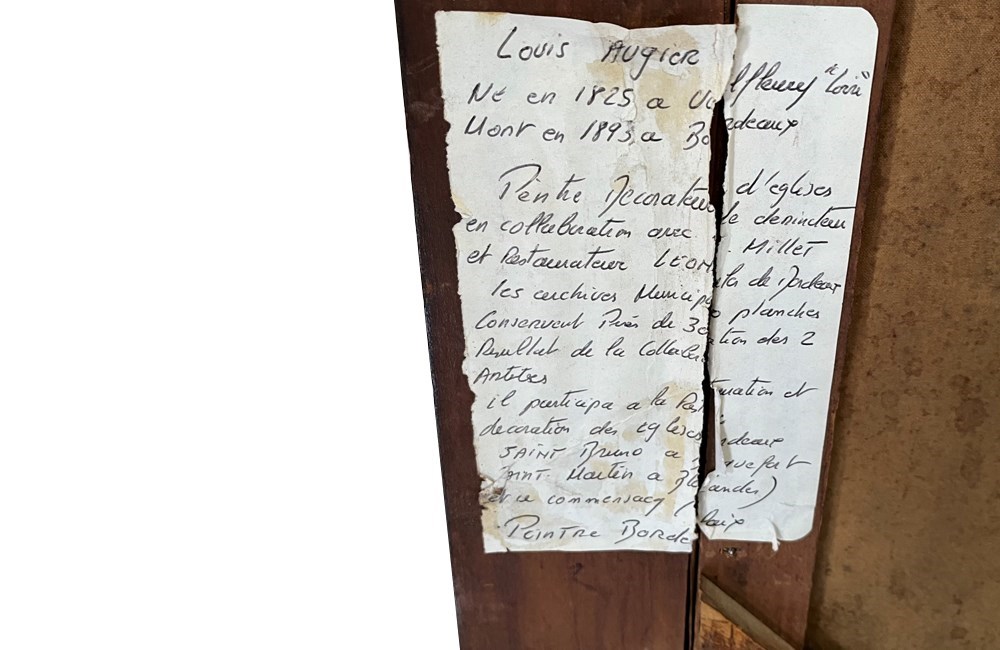 Louis Augier
Né en 1825 a Valfleury "Loire"
Mort en 1893 a Bordeaux
Peintre Decorateur d'eglises
en collaboration avec le dessinateur
et Restaurateur LEON. Millet
les archives Municipales de Bordeaux
Conservent Près de 30 planches
Resultat de la Collaboration des 2
Artistes
il participa a la Restauration et
decoration des eglises
SAINT Bruno a Bordeaux
SAINT Martin a
et a commensacq (Landes)
Peintre Bordelaix